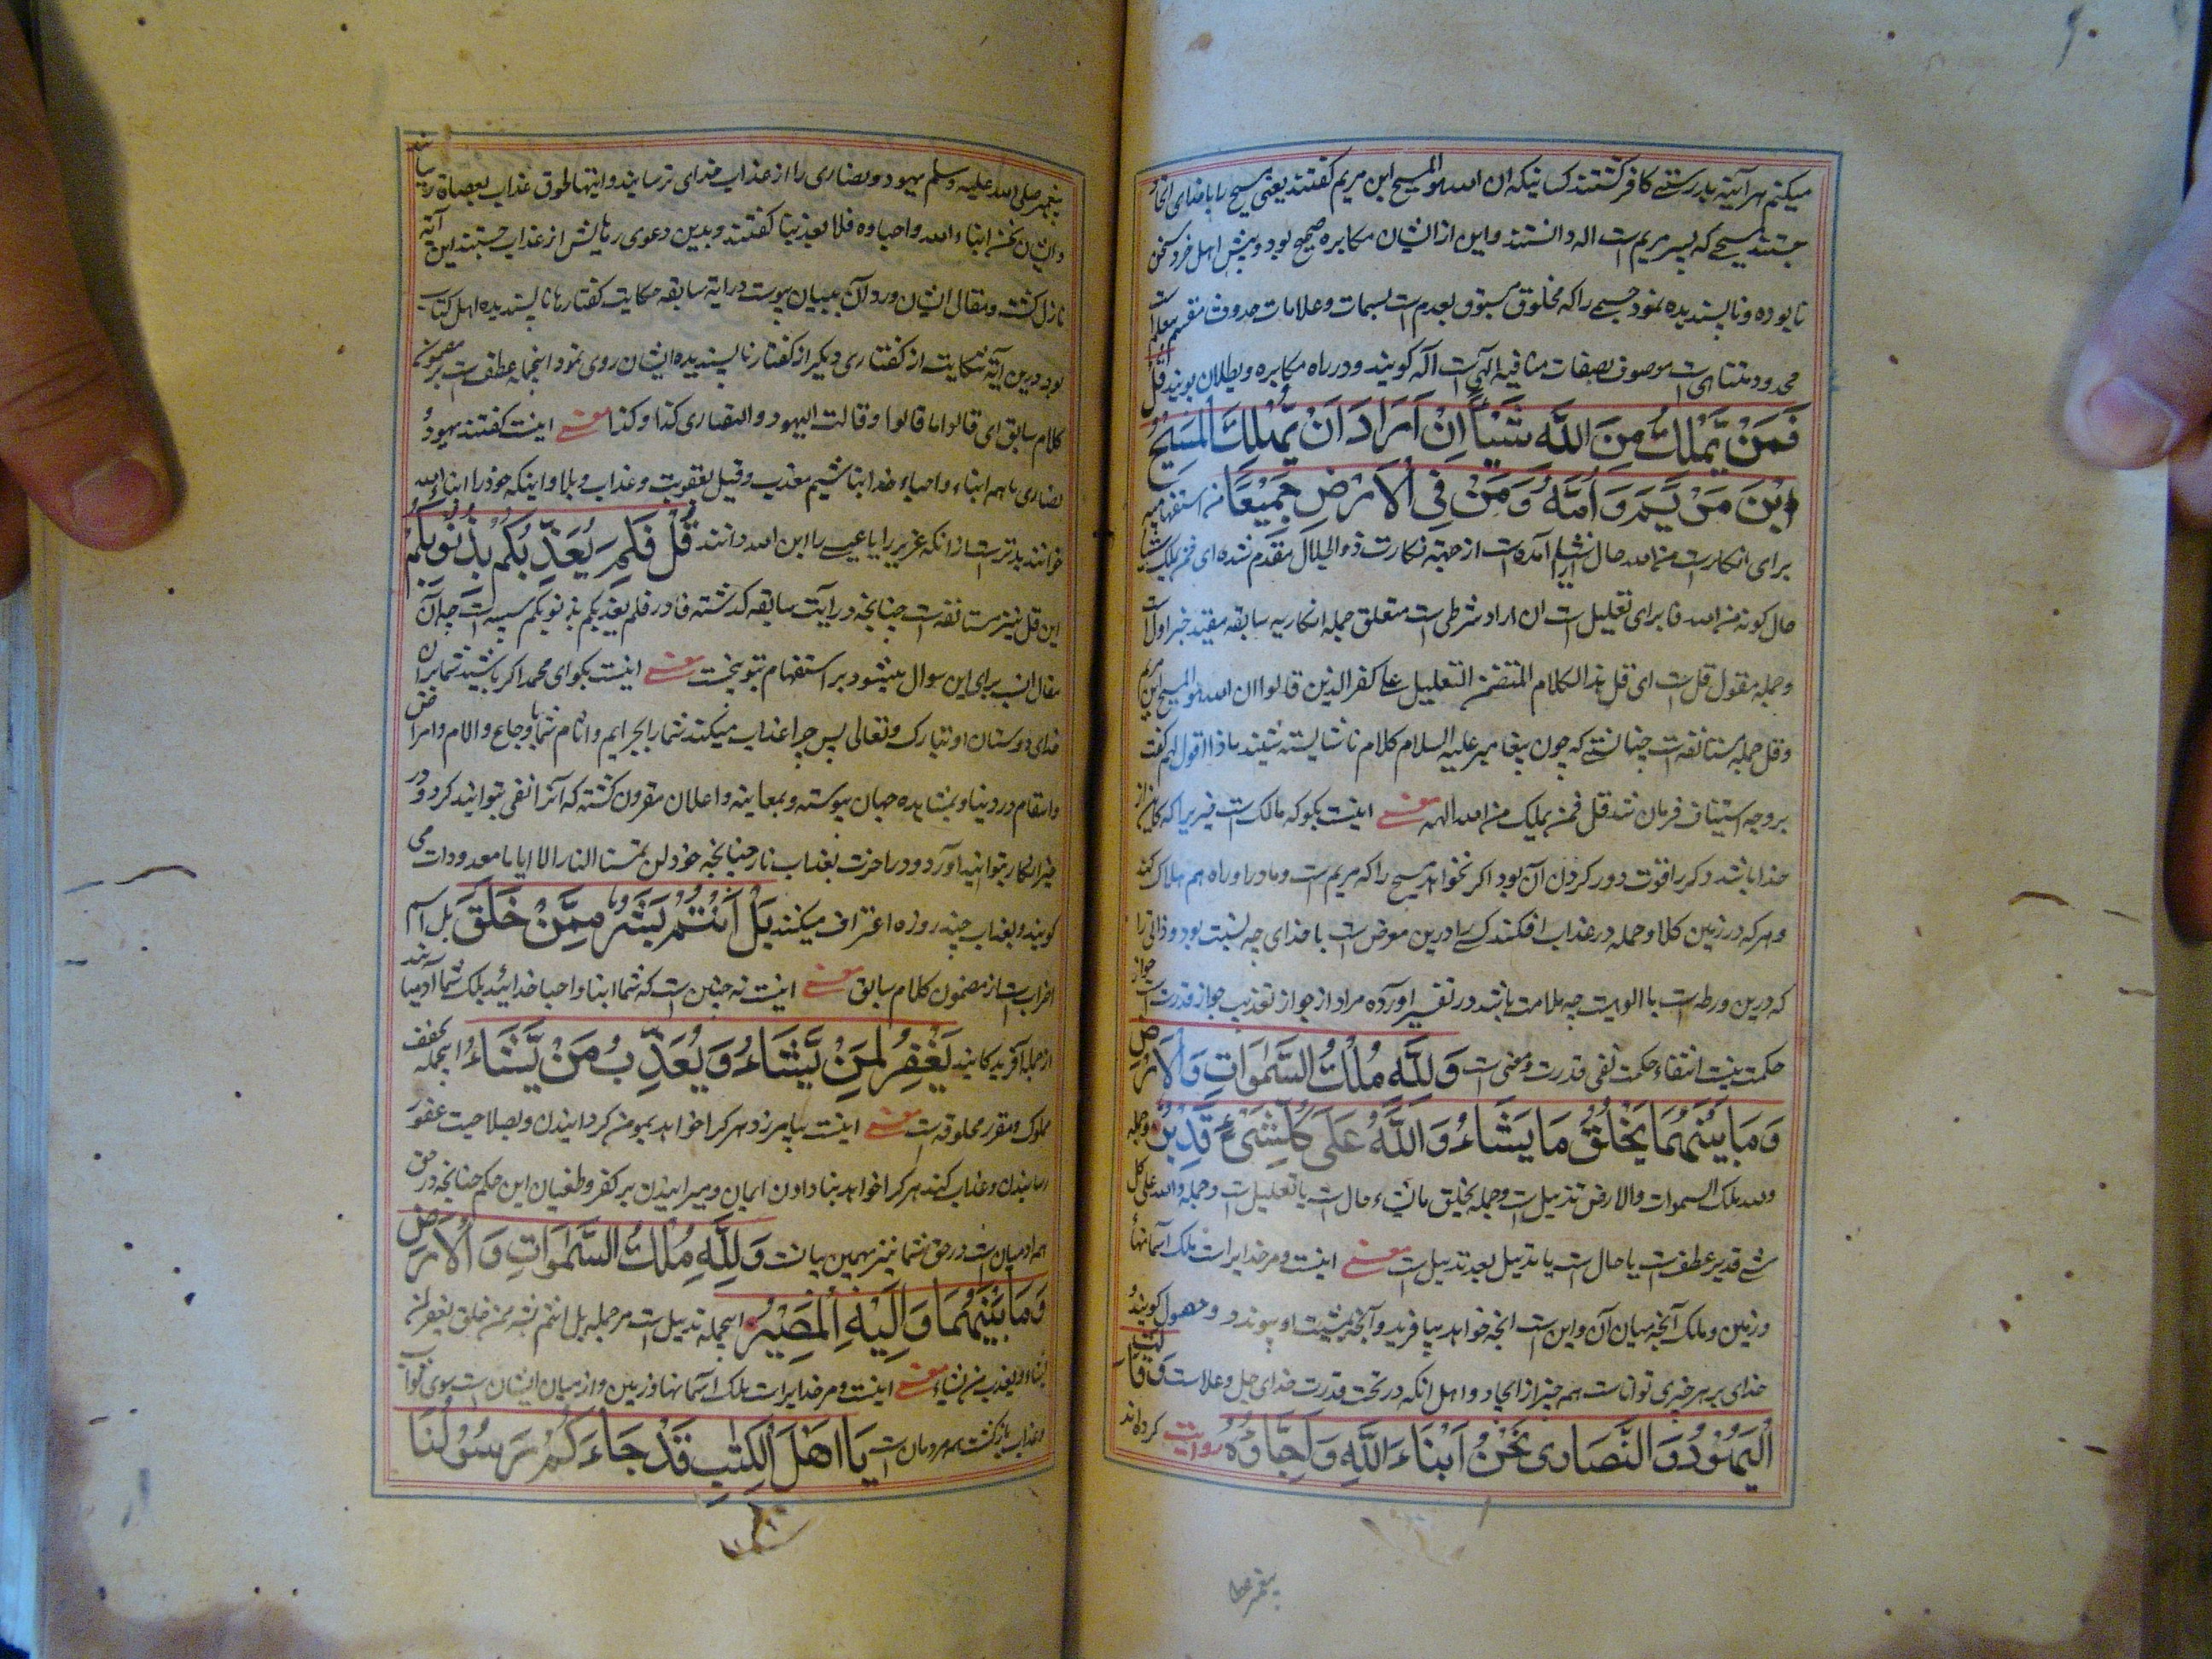 میکنم هرآینه بدرستے کافر گشتند کسانیکه ان الله هو المسیح ابن مریم گفتند یعنی مسیح را با خدای
جستند مسیحے که پسر مریم است اله دانستند و این از ایشان مکابره صحیح بود و پیش اهل خرد سخن
نابوده و ناپسندیده نمود جسمے را که مخلوق مسبوق بعدم است بسمات و علامات حدوث
محدود متناهی است موصوف بصفات منافیه الهی است اله گویند و در راه مکابره و بطلان پویند قُلْ
فَمَنْ يَّمْلِكُ مِنَ اللّٰهِ شَيْئًا اِنْ اَرَادَ اَنْ يُّهْلِكَ الْمَسِيْحَ
ابْنَ مَرْيَمَ وَاُمَّهُ وَمَنْ فِي الْاَرْضِ جَمِيْعًا من استفهامیه
برای انکارست من الله حال شیئا آمده است از جهته نکارت ذو الحال مقدم شده ای فمن یملک شیئا
حال کونه من الله فا برای تعلیل است ان اراد شرطی است متعلق جمله انکاریه سابقه مقید خبر اول است
و جمله مقول قل است ای قل هذا الکلام المتضمن التعلیل علی کفر الذین قالوا ان الله هو المسیح ابن مریم
و قل جمله مستانفه است چنانستے که چون پیغامبر علیه السلام کلام ناشایسته شنید ماذا اقول لهم گفت
بروجه استیناف فرمان شد قل فمن یملک من الله الهه معنے اینست بگو که مالک است
خدا باشد و کرا قوت دور کردن آن بود اگر بخواهد مسیح را که مریم است و مادر او را هم هلاک کند
و هر که در زمین کلا و جمله در عذاب افکند کسے را درین معرض است با خدای چه نسبت بود و ذاتی را
که درین ورطه است با الوهیت چه ملامت باشد در تفسیر آورده مراد از جواز تعذیب جواز قدرت است
حکمت نیست انتفاء حکمت نفی قدرت و معنی است وَلِلّٰهِ مُلْكُ السَّمٰوَاتِ وَالْاَرْضِ
وَمَا بَيْنَهُمَا يَخْلُقُ مَا يَشَاءُ وَاللّٰهُ عَلٰى كُلِّ شَيْءٍ قَدِيْرٌ و جمله
ولله ملک السموات والارض تذییل است و جمله یخلق ما یشاء حال است یا تعلیل است و جمله والله علی کل
شے قدیر عطف است یا حال است یا تذییل بعد تذییل است معنے اینست و مر خدایراست ملک آسمانها
و زمین و ملک آنچه میان آن و این است آنچه خواهد بیافریند و آنچه بمشیت او پیوندد و حصول گویند
خدای بر هر چیزی تواناست همه چیز از ایجاد و اهل آنکه در تحت قدرت خدای جل و علاست وَقَالَتِ
الْيَهُوْدُ وَالنَّصَارٰى نَحْنُ اَبْنَاءُ اللّٰهِ وَاَحِبَّاؤُهُ روایت کرده‌اند
پیغمبر صلی
پیغمبر صلی الله علیه و سلم یهود و نصاری را از عذاب خدای ترسانید و اینها طوق عذاب بعصاة رسانید
و ایشان نحن ابناء الله و احباوه فلا یعذبنا گفتند و بدین دعوی رهایش از عذاب جستند این آیه
نازل گشت و مقال ایشان و رد آن ببیان پیوست در آیه سابقه حکایت گفتارها ناپسندیده اهل کتاب
بود درین آیه شکایت از گفتاری دیگر از گفتار ناپسندیده ایشان روی نمود اینجمله عطف است بر مضمون
کلام سابق ای قالوا ما قالوا و قالت الیهود والنصاری کذا و کذا معنے اینست گفتند یهود و
نصاری ما هم ابناء و احباء خدا باشیم معذب و قیل بعقوبت و عذاب و بلا و اینکه خود را ابناء الله
خوانند بدترست از آنکه عزیر را یا عیسی را ابن الله دانند قُلْ فَلِمَ يُعَذِّبُكُمْ بِذُنُوْبِكُمْ
این قل نیز مستانفه است چنانچه در آیت سابقه گذشته فا در فلم یعذبکم بذنوبکم سببیه است چه آن
مقال ایشان برای این سوال میشود بر استفهام توبیخست معنے اینست بگو ای محمد اگر باشید شما پسران
خدای دوستان او تبارک و تعالی پس چرا عذاب میکند شما را بجرایم و آثام شما باوجاع و الام و امراض
و انتقام در دنیا و بمشاهده جهان پیوسته و بمعاینه و اعلان مقرون گشته که آنرا نفی نتوانید کرد و در
خبر انکار نتوانید آورد و در آخرت بعذاب نار چنانچه خود لن تمسنا النار الا ایاما معدودات می
گویند و بعذاب چند روزه اعتراف میکنند بَلْ اَنْتُمْ بَشَرٌ مِمَّنْ خَلَقَ بل اسم
اضراب است از مضمون کلام سابق معنے اینست نه چنین است که شما ابناء و احباء خدائید بلکه شما آدمیانید
از جمله آفریدگانید يَغْفِرُ لِمَنْ يَّشَاءُ وَيُعَذِّبُ مَنْ يَّشَاءُ و اینجمله
مملوک و مقرر مخلوقه است معنے اینست بیامرزد هر کرا خواهد بمومن گردانیدن و بصلاحیت عفو
رسانیدن و عذاب کند هر کرا خواهد بنادادن ایمان و میرانیدن بر کفر و طغیان این حکم چنانچه در حق
همه آدمیان است در حق شما نیز بهمین بیانست وَلِلّٰهِ مُلْكُ السَّمٰوَاتِ وَالْاَرْضِ
وَمَا بَيْنَهُمَا وَاِلَيْهِ الْمَصِيْرُ اینجمله تذییل است مر جمله بل انتم بشر ممن خلق یغفر لمن
یشاء و یعذب من یشاء معنے اینست و مر خدایراست ملک آسمانها و زمین و از میان ایشان است بسوی ثواب
و عذاب بازگشت همه مردمان است يَا اَهْلَ الْكِتٰبِ قَدْ جَاءَكُمْ رَسُوْلُنَا